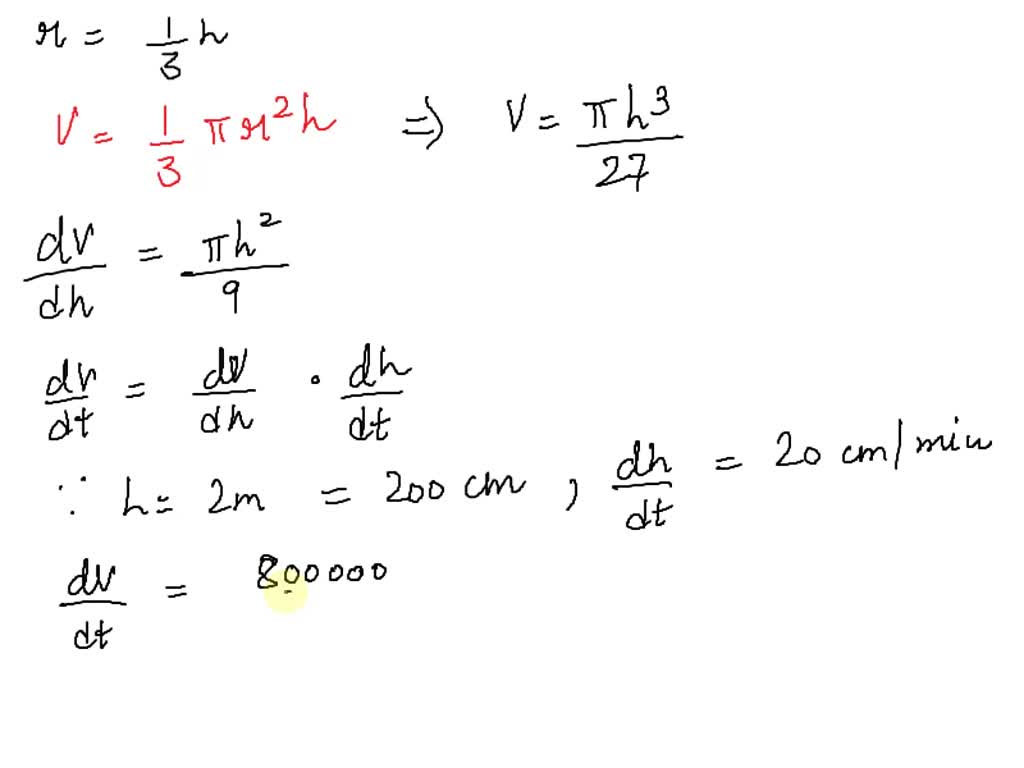 r = 1/3 h
V = 1/3 πr²h ⇒ V = πh³/27
dv/dh = πh²/9
dv/dt = dv/dh · dh/dt
∵ h = 2m = 200 cm , dh/dt = 20 cm/min
dv/dt = 800000